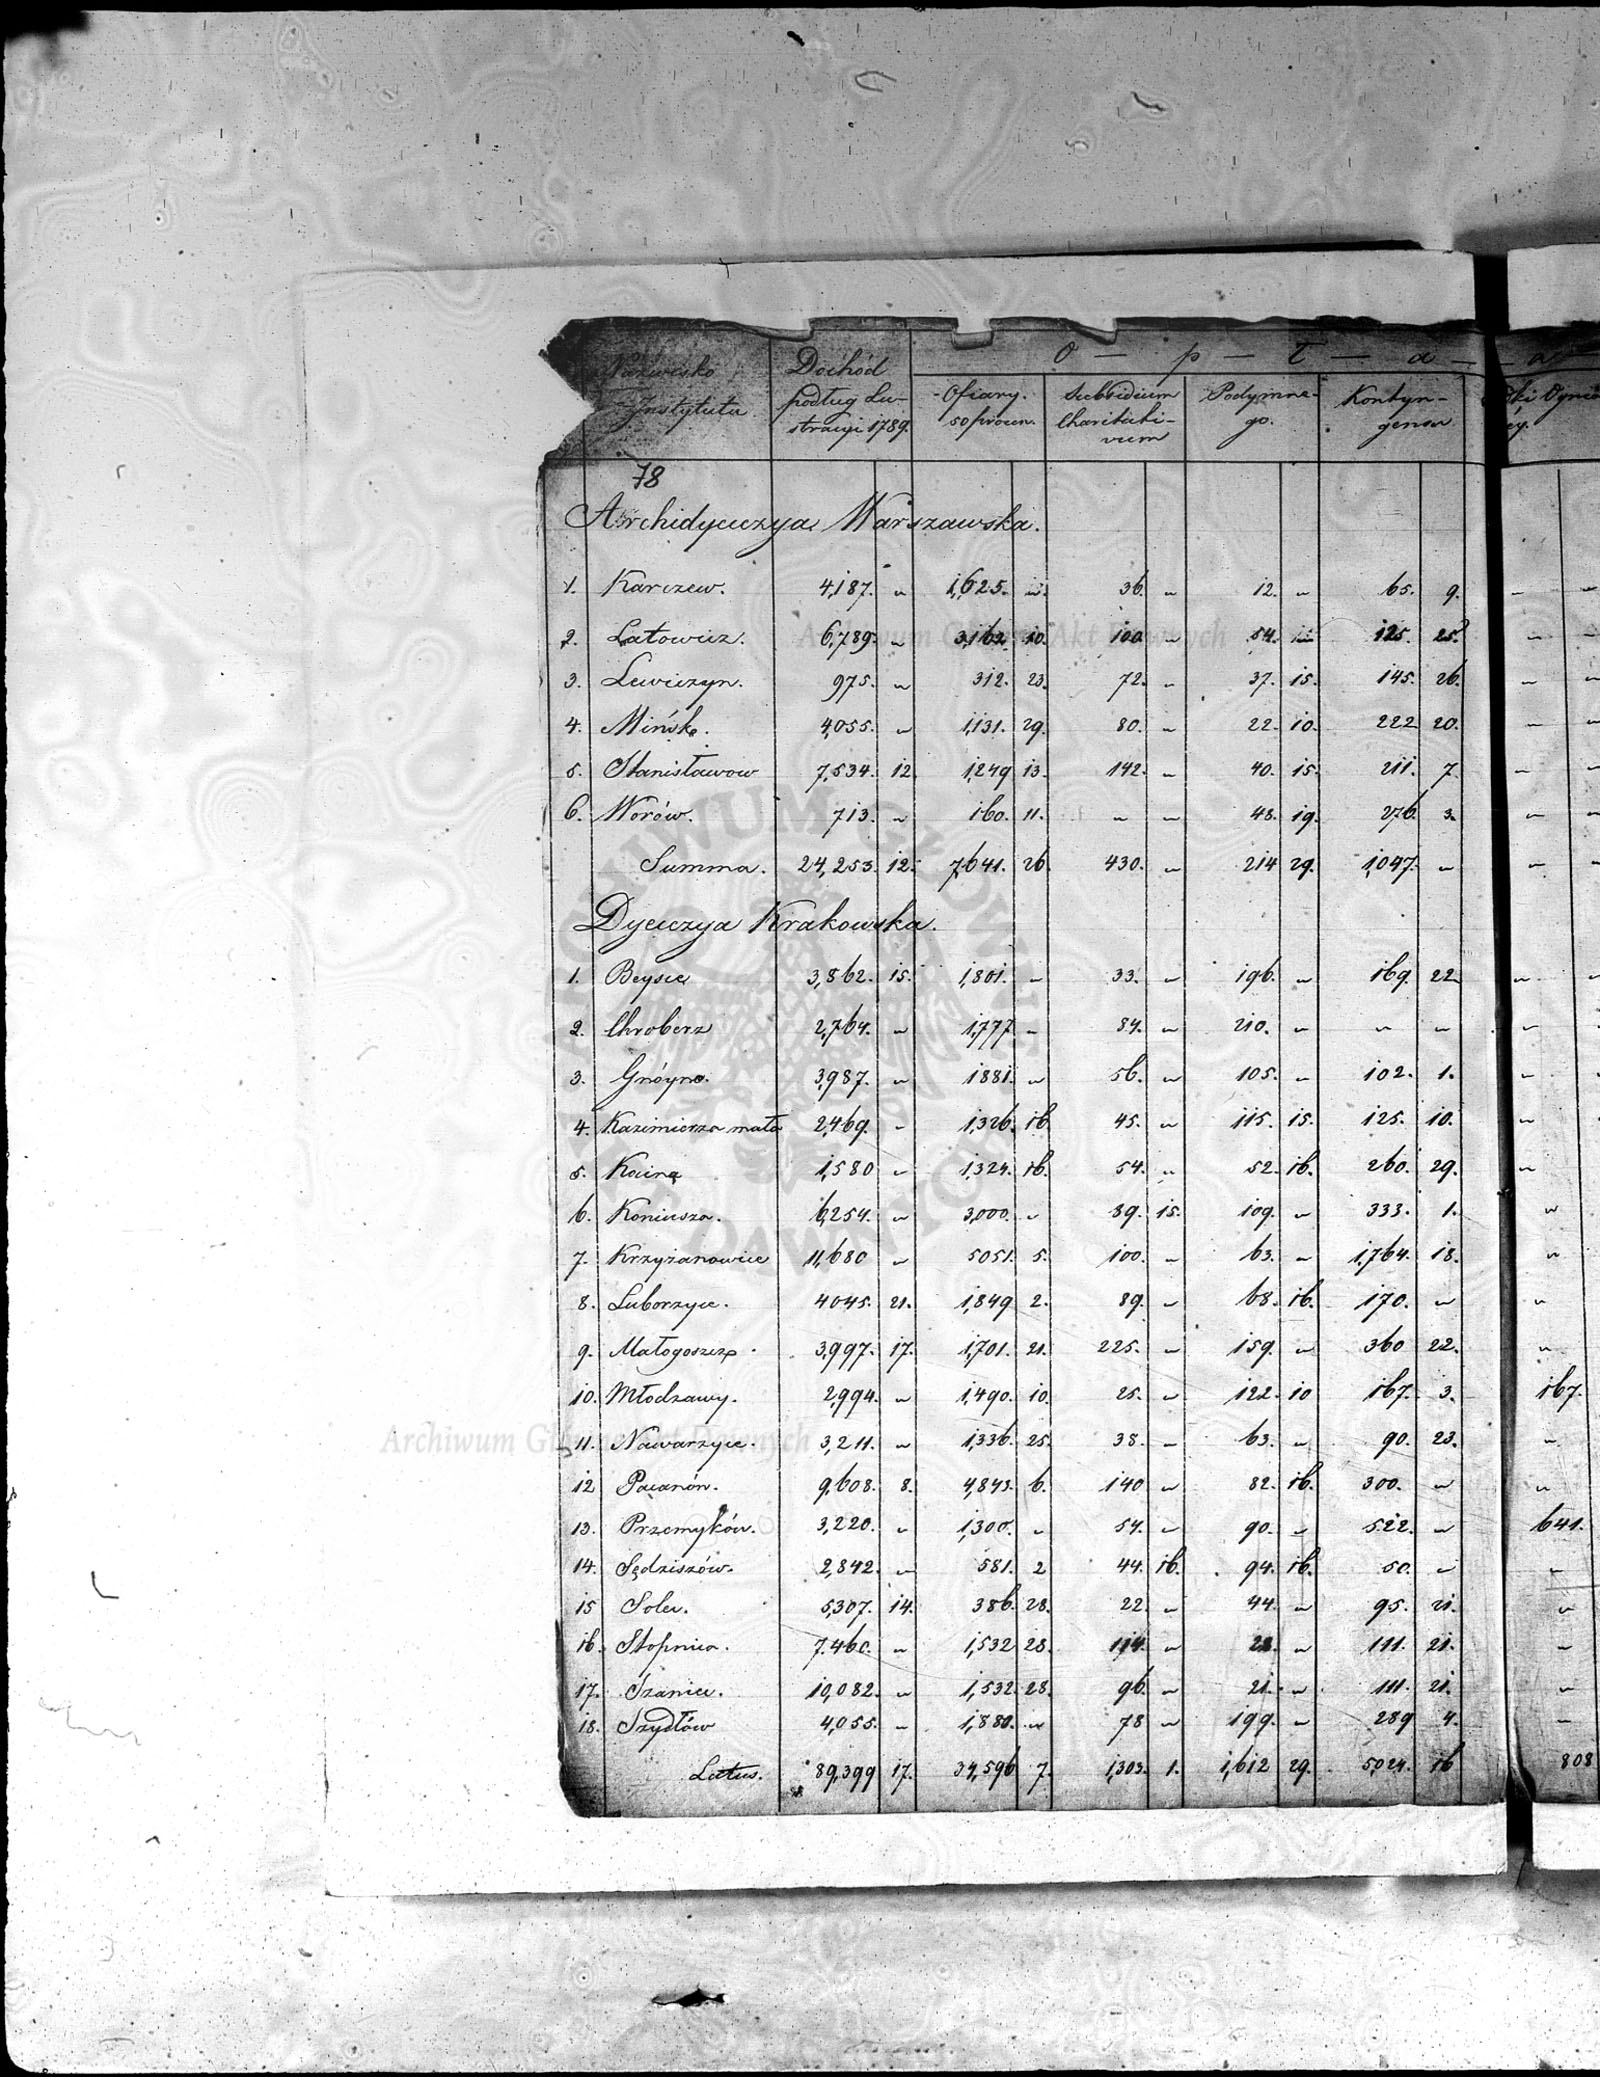 Nazwisko Instytutu | Dochód podług Lustracyi 1789. | O — p — ł — a — a —
Ofiary 50 procen. | Subsidium Charitativum | Podymnego. | Kontyngensu
78
Archidyecezya Warszawska.
1. Karczew. 4,187. „ 1,625. „ 36. „ 12. „ 65. 9. „ „
2. Latowicz. 6,789. „ 3,162. 10. 100 „ 54. „ 125. 25. „ „
3. Lewiczyn. 975. „ 312. 23. 72. „ 37. 15. 145. 26. „ „
4. Mińsk. 4,055. „ 1,131. 29. 80. „ 22. 10. 222 20. „ „
5. Stanisławow 7,534. 12. 1,249 13. 142. „ 40. 15. 211. 7. „ „
6. Worów. 713. „ 160. 11. „ „ 48. 19. 276. 3. „ „
Summa. 24,253. 12. 7,641. 26. 430. „ 214 29. 1,047. „ „ „
Dyecezya Krakowska.
1. Beysce 3,862. 15. 1,801. „ 33. „ 196. „ 169. 22. „ „
2. Chroberz 2,764. „ 1,777 „ 84. „ 210. „ „ „ „
3. Gnóyno. 3,987. „ 1881. „ 56. „ 105. „ 102. 1. „
4. Kazimierza mała 2,469. „ 1,326. 16. 45. „ 115. 15. 125. 10. „
5. Kaina 1,580 „ 1,324. 16. 54. „ 52. 16. 260. 29. „
6. Koniusza. 6,254. „ 3,000. „ 89. 15. 109. „ 333. 1. „
7. Krzyżanowice 11,680 „ 5051. 5. 100. „ 63. „ 1,764. 18. „
8. Luborzyce. 4045. 21. 1,849 2. 89. „ 68. 16. 170. „ „
9. Małogoszcz 3,997. 17. 1,701. 21. 225. „ 159. „ 360 22. „
10. Młodzawy. 2,994. „ 1,490. 10. 25. „ 122. 10 167. 3. 167.
11. Nawarzyce. 3,211. „ 1,336. 25. 38. „ 63. „ 90. 23. „
12 Pacanów. 9,608. 8. 4,843. 6. 140 „ 82. 16. 300. „ „
13. Przemyków. 3,220. „ 1,300. „ 54. „ 90. „ 522. „ 641.
14. Sędziszów. 2,842. „ 581. 2 44. 16. 94. 16. 50. „ „
15 Solec. 5,307. 14. 386. 28. 22. „ 44. „ 95. 21. „
16. Stopnica. 7,460. „ 1,532 28. 114. „ 28. „ 111. 21. „
17. Szaniec. 10,082. „ 1,532. 28. 96. „ 21. „ 111. 21. „
18. Szydłów 4,055. „ 1,880. „ 78 „ 199. „ 289 4. „
Latus. 89,399 17. 34,596 7. 1,303. 1. 1,612 29. 5,024. 16 808
Archiwum Główne Akt Dawnych
Archiwum Główne Akt Dawnych
ARCHIWUM GŁÓWNE AKT DAWNYCH